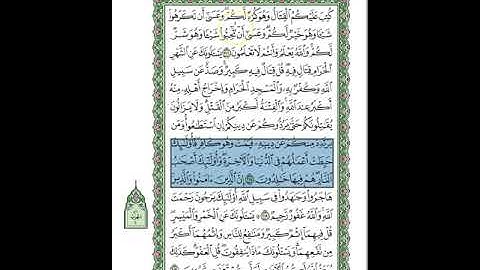 كُتِبَ عَلَيْكُمُ ٱلْقِتَالُ وَهُوَ كُرْهٌ لَّكُمْ وَعَسَىٰٓ أَن تَكْرَهُوا۟
شَيْـًٔا وَهُوَ خَيْرٌ لَّكُمْ وَعَسَىٰٓ أَن تُحِبُّوا۟ شَيْـًٔا وَهُوَ شَرٌّ
لَّكُمْ وَٱللَّهُ يَعْلَمُ وَأَنتُمْ لَا تَعْلَمُونَ يَسْـَٔلُونَكَ عَنِ ٱلشَّهْرِ
ٱلْحَرَامِ قِتَالٍ فِيهِ قُلْ قِتَالٌ فِيهِ كَبِيرٌ وَصَدٌّ عَن سَبِيلِ
ٱللَّهِ وَكُفْرٌۢ بِهِۦ وَٱلْمَسْجِدِ ٱلْحَرَامِ وَإِخْرَاجُ أَهْلِهِۦ مِنْهُ
أَكْبَرُ عِندَ ٱللَّهِ وَٱلْفِتْنَةُ أَكْبَرُ مِنَ ٱلْقَتْلِ وَلَا يَزَالُونَ
يُقَـٰتِلُونَكُمْ حَتَّىٰ يَرُدُّوكُمْ عَن دِينِكُمْ إِنِ ٱسْتَطَـٰعُوا۟ وَمَن
يَرْتَدِدْ مِنكُمْ عَن دِينِهِۦ فَيَمُتْ وَهُوَ كَافِرٌ فَأُو۟لَـٰٓئِكَ
حَبِطَتْ أَعْمَـٰلُهُمْ فِى ٱلدُّنْيَا وَٱلْـَٔاخِرَةِ وَأُو۟لَـٰٓئِكَ أَصْحَـٰبُ
ٱلنَّارِ هُمْ فِيهَا خَـٰلِدُونَ إِنَّ ٱلَّذِينَ ءَامَنُوا۟ وَٱلَّذِينَ
هَاجَرُوا۟ وَجَـٰهَدُوا۟ فِى سَبِيلِ ٱللَّهِ أُو۟لَـٰٓئِكَ يَرْجُونَ رَحْمَتَ
ٱللَّهِ وَٱللَّهُ غَفُورٌ رَّحِيمٌ يَسْـَٔلُونَكَ عَنِ ٱلْخَمْرِ وَٱلْمَيْسِرِ
قُلْ فِيهِمَآ إِثْمٌ كَبِيرٌ وَمَنَـٰفِعُ لِلنَّاسِ وَإِثْمُهُمَآ أَكْبَرُ
مِن نَّفْعِهِمَا وَيَسْـَٔلُونَكَ مَاذَا يُنفِقُونَ قُلِ ٱلْعَفْوَ كَذَٰلِكَ